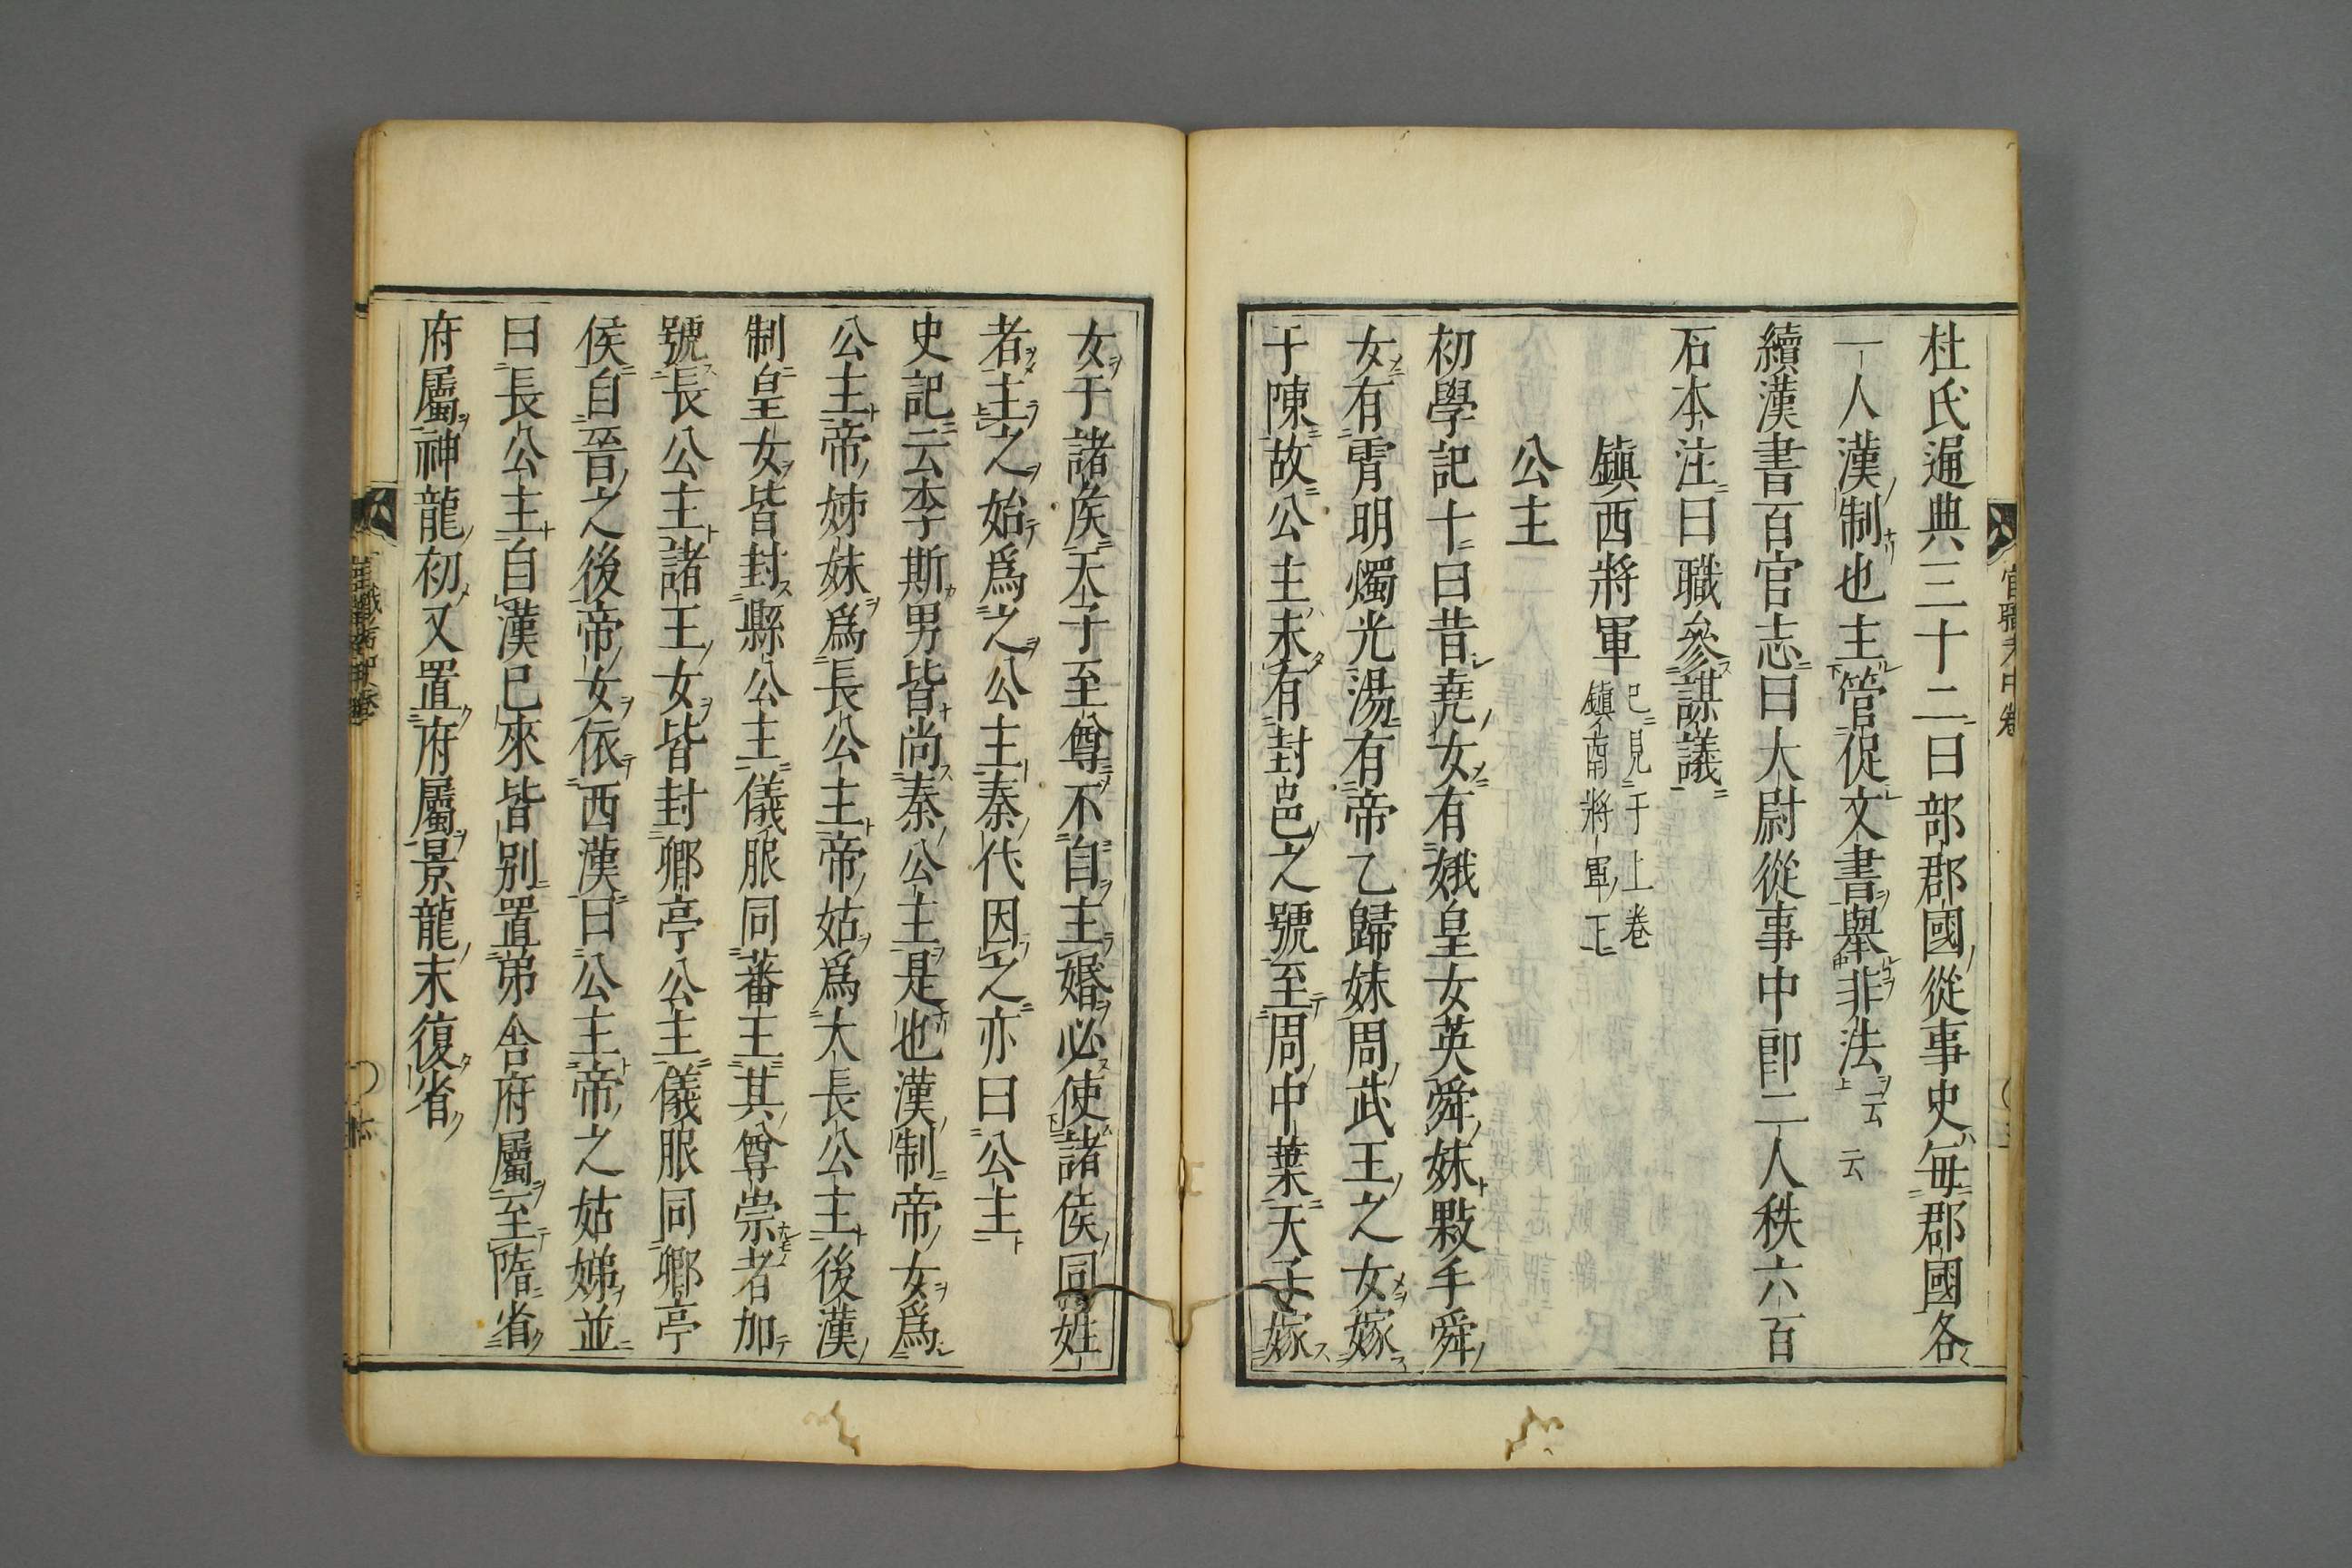 杜氏通典三十二曰部郡國從事史毎郡國各
一人漢制也主管促文書舉非法云云
續漢書百官志曰大尉從事中郎二人秩六百
石本注曰職參謀議
鎮西將軍 已見于上卷
鎮南將軍下
公主
初學記十曰昔堯女有娥皇女英舜妹敤手舜
女有霄明燭光湯有帝乙歸妹周武王之女嫁
于陳故公主未有封邑之號至周中葉天子嫁
女于諸侯天子至尊不自主婚必使諸侯同姓
者主之始爲之公主秦代因之亦曰公主
史記云李斯男皆尚秦公主是也漢制帝女爲
公主帝姊妹爲長公主帝姑爲大長公主後漢
制皇女皆封縣公主儀服同蕃王其尊崇者加
號長公主諸王女皆封鄉亭公主儀服同鄉亭
侯自晉之後帝女依西漢曰公主帝之姑娣並
曰長公主自漢已來皆別置第舎府屬至隋省
府屬神龍初又置府屬景龍末復省
官職考中卷